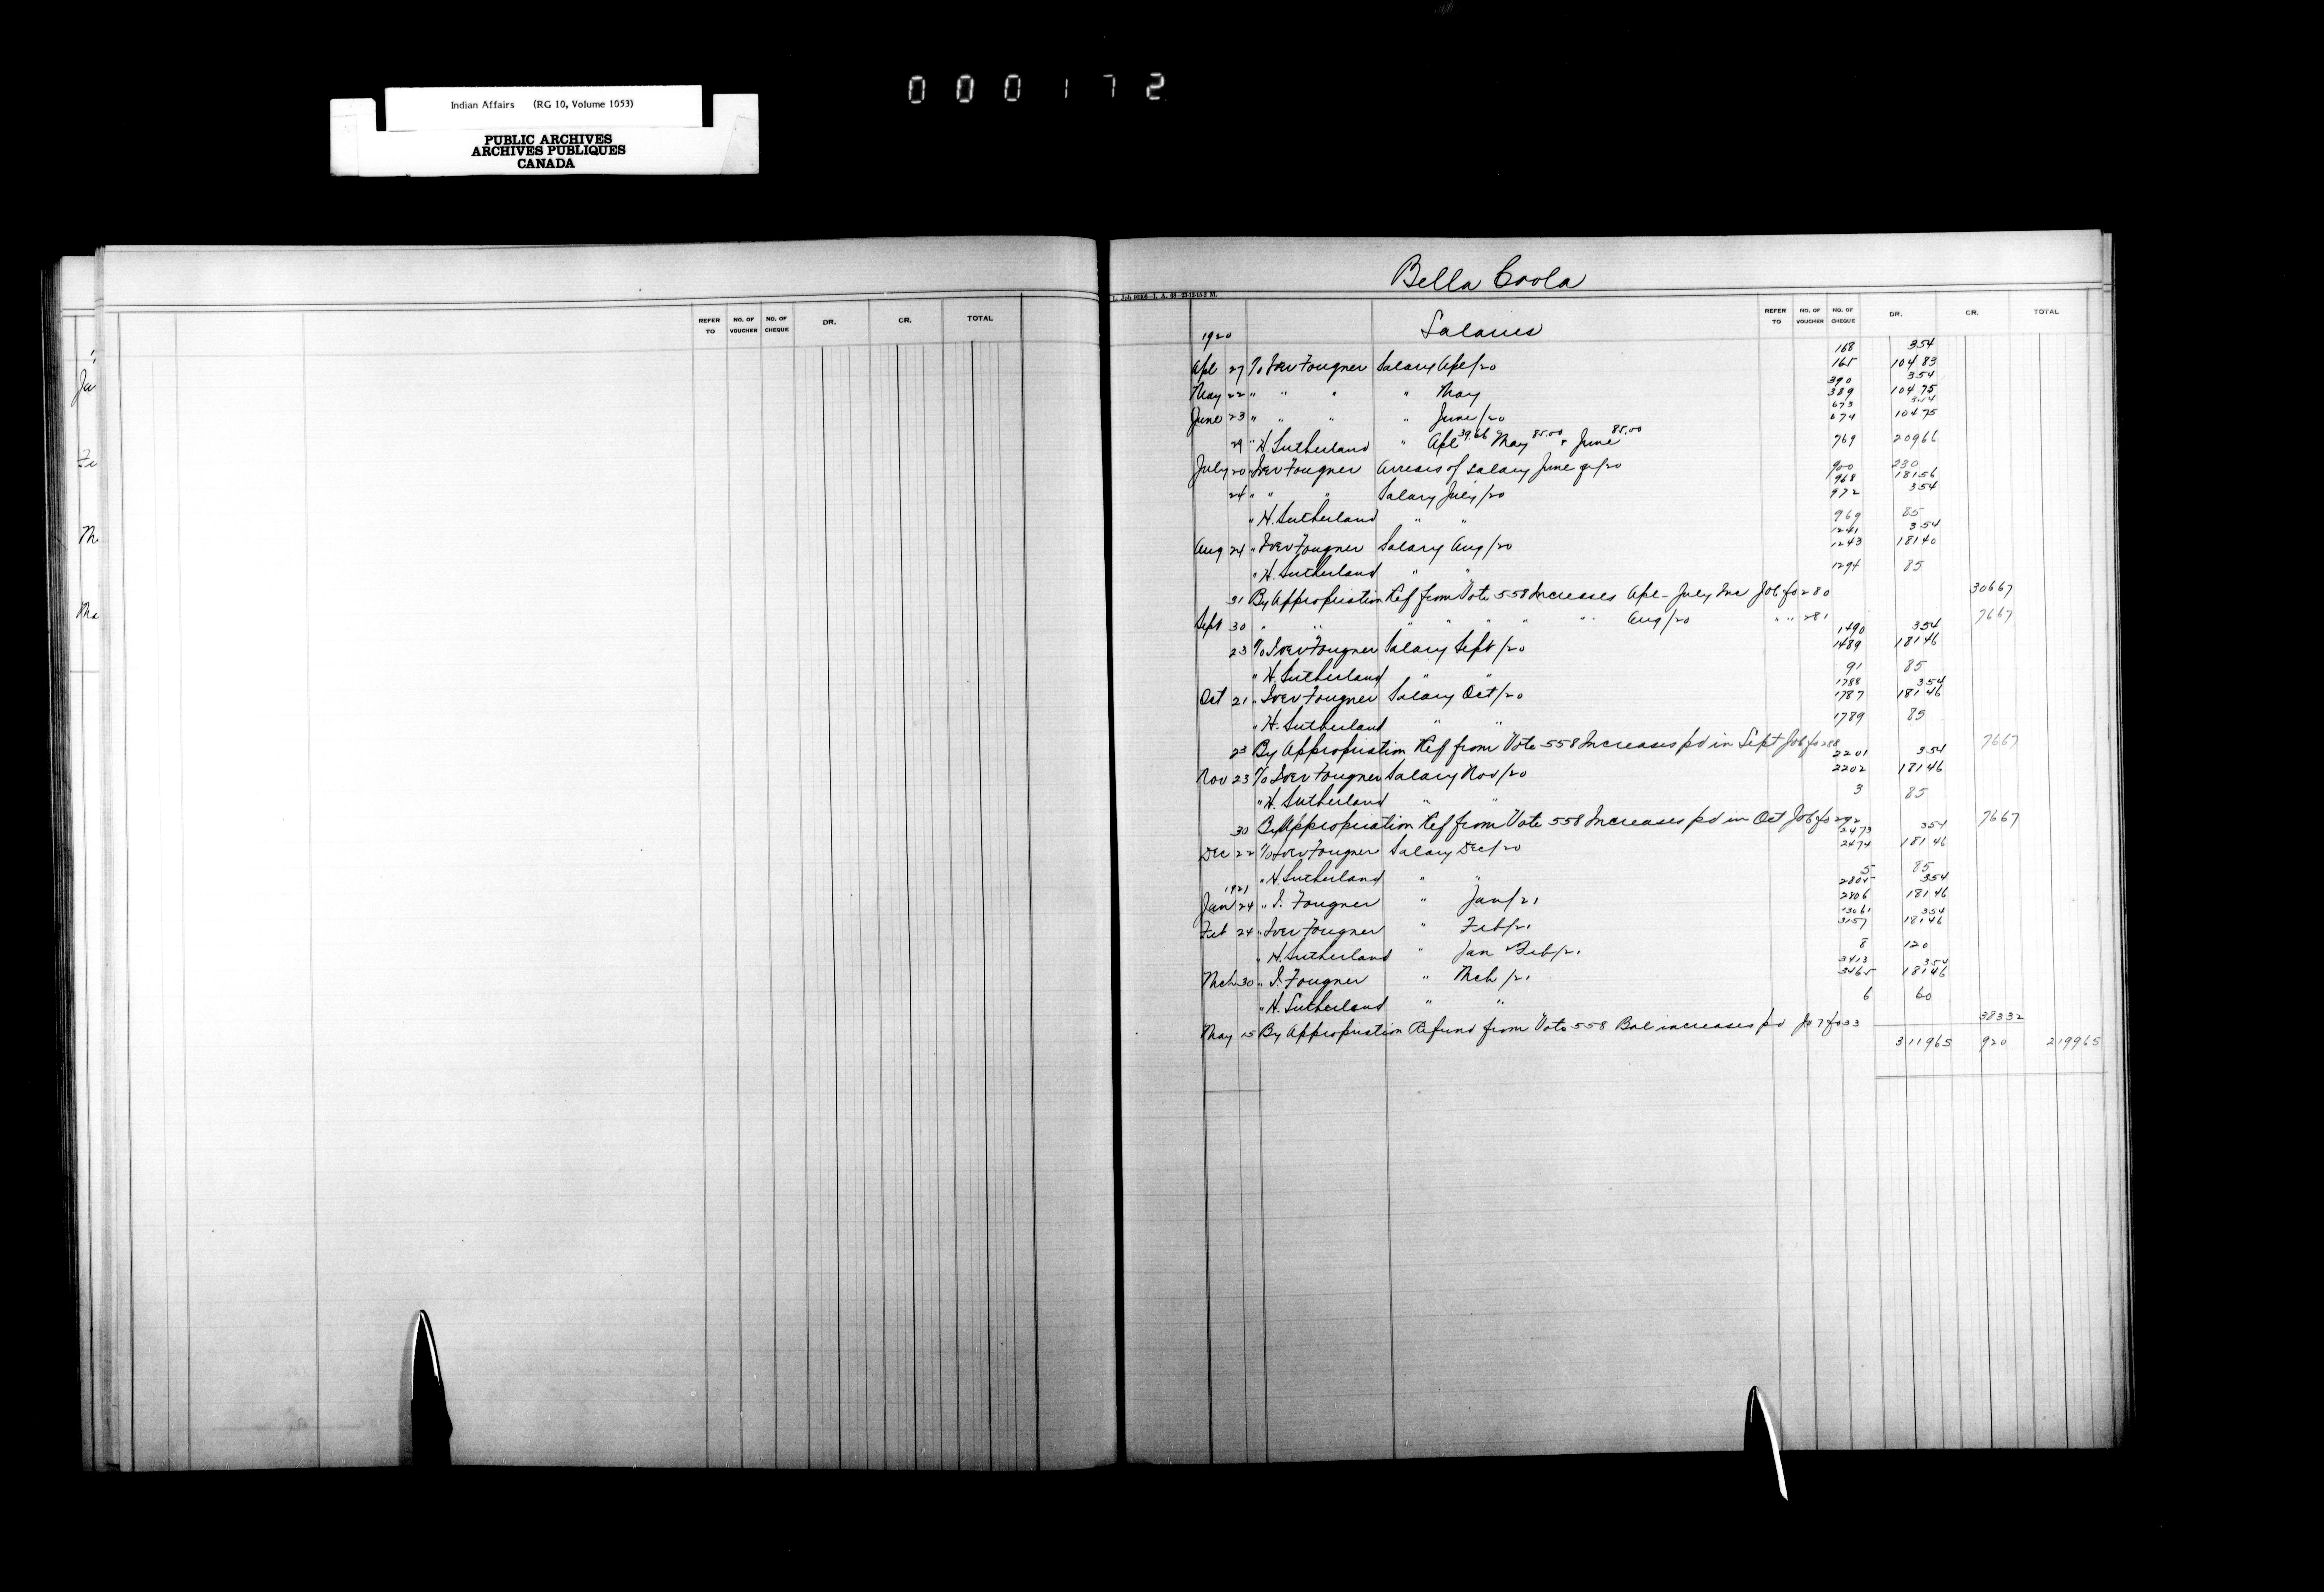 000172
Indian Affairs (RG 10, Volume 1053)
PUBLIC ARCHIVES
ARCHIVES PUBLIQUES
CANADA
Ju
Fe
Ma
REFER TO NO. OF VOUCHER NO. OF CHEQUE DR. CR. TOTAL
Bella Coola
REFER TO NO. OF VOUCHER NO. OF CHEQUE DR. CR. TOTAL
1920 Salaries
168 3 54
Apl 27 To Iver Fougner Salary Apl/20 165 104 83
390 3 54
May 22 " " " " May 389 104 75
673 3 54
June 23 " " " " June/20 674 104 75
29 " H. Sutherland " Apl 39.66 May 85.00 & June 85.00 769 209 66
July 20 " Iver Fougner Arrears of salary June qr/20 900 230
968 181 56
24 " " " Salary July/20 972 3 54
" H. Sutherland " " 969 85
1241 3 54
Aug 24 " Iver Fougner Salary Aug/20 1243 181 40
" H. Sutherland " " 1294 85
31 By Appropriation Ref from Vote 558 Increases Apl - July Inc Jo 6 fo 280 306 67
Sept 30 " " " " " " " Aug/20 " " 281 76 67
1490 3 54
23 To Iver Fougner Salary Sept/20 1489 181 46
" H. Sutherland " " 91 85
1788 3 54
Oct 21 " Iver Fougner Salary Oct/20 1787 181 46
" H. Sutherland " " 1789 85
23 By Appropriation Ref from Vote 558 Increases pd in Sept Jo 6 fo 288 76 67
2201 3 54
Nov 23 To Iver Fougner Salary Nov/20 2202 181 46
" H. Sutherland " " 3 85
30 By Appropriation Ref from Vote 558 Increases pd in Oct Jo 6 fo 292 76 67
2473 3 54
Dec 22 To Iver Fougner Salary Dec/20 2474 181 46
" H. Sutherland " " 5 85
1921 2805 3 54
Jan 24 " I. Fougner " Jan/21 2806 181 46
3061 3 54
Feb 24 " Iver Fougner " Feb/21 3157 181 46
" H. Sutherland " Jan & Feb/21 8 120
3413 3 54
Mch 30 " I. Fougner " Mch/21 3465 181 46
" H. Sutherland " " 6 60
May 15 By Appropriation Refund from Vote 558 Bal increases pd Jo 7 fo 33 383 32
3119 65 920 2199 65